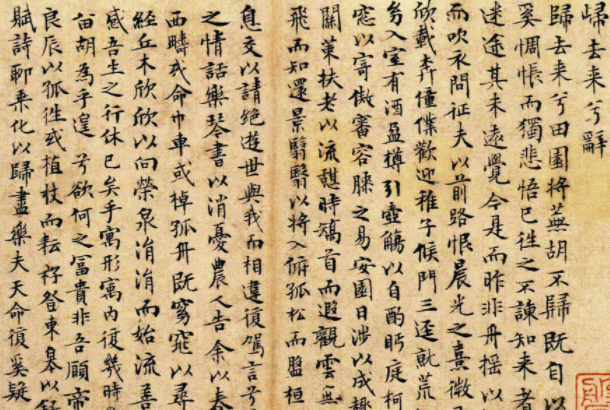 歸去来兮辭
歸去来兮田園将蕪胡不歸既自以
奚惆悵而獨悲悟已往之不諫知来者
迷途其未遠覺今是而昨非舟摇以
而吹衣問征夫以前路恨晨光之熹微
欣載奔僮僕歡迎稚子候門三逕就荒
幼入室有酒盈樽引壺觴以自酌眄庭柯
窓以寄傲審容膝之易安園日涉以成趣
關策扶老以流憩時矯首而遐觀雲無
飛而知還景翳翳以将入孤松而盤桓
息交以請絶遊世與我而相違復駕言兮
之情話樂琴書以消憂農人告余以春
西疇或命巾車或棹孤舟既窈窕以尋
經丘木欣欣以向榮泉涓涓而始流善
感吾生之行休已矣乎寓形寓内復幾時
胡為乎遑兮欲何之富貴非吾願帝
良辰以孤往或植杖而耘耔登東皋以舒
賦詩聊乘化以歸盡樂夫天命復奚疑